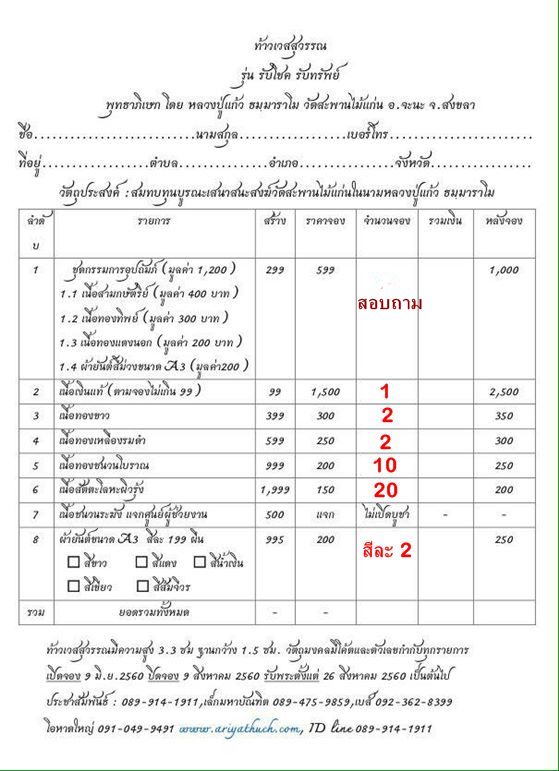 ท้าวเวสสุวรรณ
รุ่น รับโชค รับทรัพย์
พุทธาภิเษก โดย หลวงปู่แก้ว ธมฺมาราโม วัดสะพานไม้แก่น อ.จะนะ จ.สงขลา
ชื่อ...........................นามสกุล..................เบอร์โทร........................
ที่อยู่..................ตำบล...............อำเภอ................จังหวัด.................
วัตถุประสงค์ : สมทบทุนบูรณะเสนาสนะสงฆ์วัดสะพานไม้แก่นในนามหลวงปู่แก้ว ธมฺมาราโม
ลำดับ รายการ สร้าง ราคาจอง จำนวนจอง รวมเงิน หลังจอง
1 ชุดกรรมการอุปถัมภ์ (มูลค่า 1,200 ) 299 599 สอบถาม 1,000
1.1 เนื้อสามกษัตริย์ (มูลค่า 400 บาท )
1.2 เนื้อทองทิพย์ (มูลค่า 300 บาท )
1.3 เนื้อทองแดงนอก (มูลค่า 200 บาท )
1.4 ผ้ายันต์สีม่วงขนาด A3 (มูลค่า200 )
2 เนื้อเงินแท้ (ตามจองไม่เกิน 99 ) 99 1,500 1 2,500
3 เนื้อทองขาว 399 300 2 350
4 เนื้อทองเหลืองรมดำ 599 250 2 300
5 เนื้อทองชนวนโบราณ 999 200 10 250
6 เนื้อสัตตะโลหะผิวรุ้ง 1,999 150 20 200
7 เนื้อชนวนระฆัง แจกศูนย์ผู้ช่วยงาน 500 แจก ไม่เปิดบูชา - -
8 ผ้ายันต์ขนาด A3 สีละ 199 ผืน 995 200 สีละ 2 250
☐ สีขาว ☐ สีแดง ☐ สีน้ำเงิน
☐ สีเขียว ☐ สีสีมจิวร
รวม ยอดรวมทั้งหมด - -
ท้าวเวสสุวรรณมีความสูง 3.3 ซม ฐานกว้าง 1.5 ซม. วัตถุมงคลมีโค้ดและตัวเลขกำกับทุกรายการ
เปิดจอง 9 มิ.ย.2560 ปิดจอง 9 สิงหาคม 2560 รับพระตั้งแต่ 26 สิงหาคม 2560 เป็นต้นไป
ประชาสัมพันธ์ : 089-914-1911,เล็กมหาบัณฑิต 089-475-9859,เบส์ 092-362-8399
โอหาดใหญ่ 091-049-9491 www.ariyathuch.com, ID line 089-914-1911